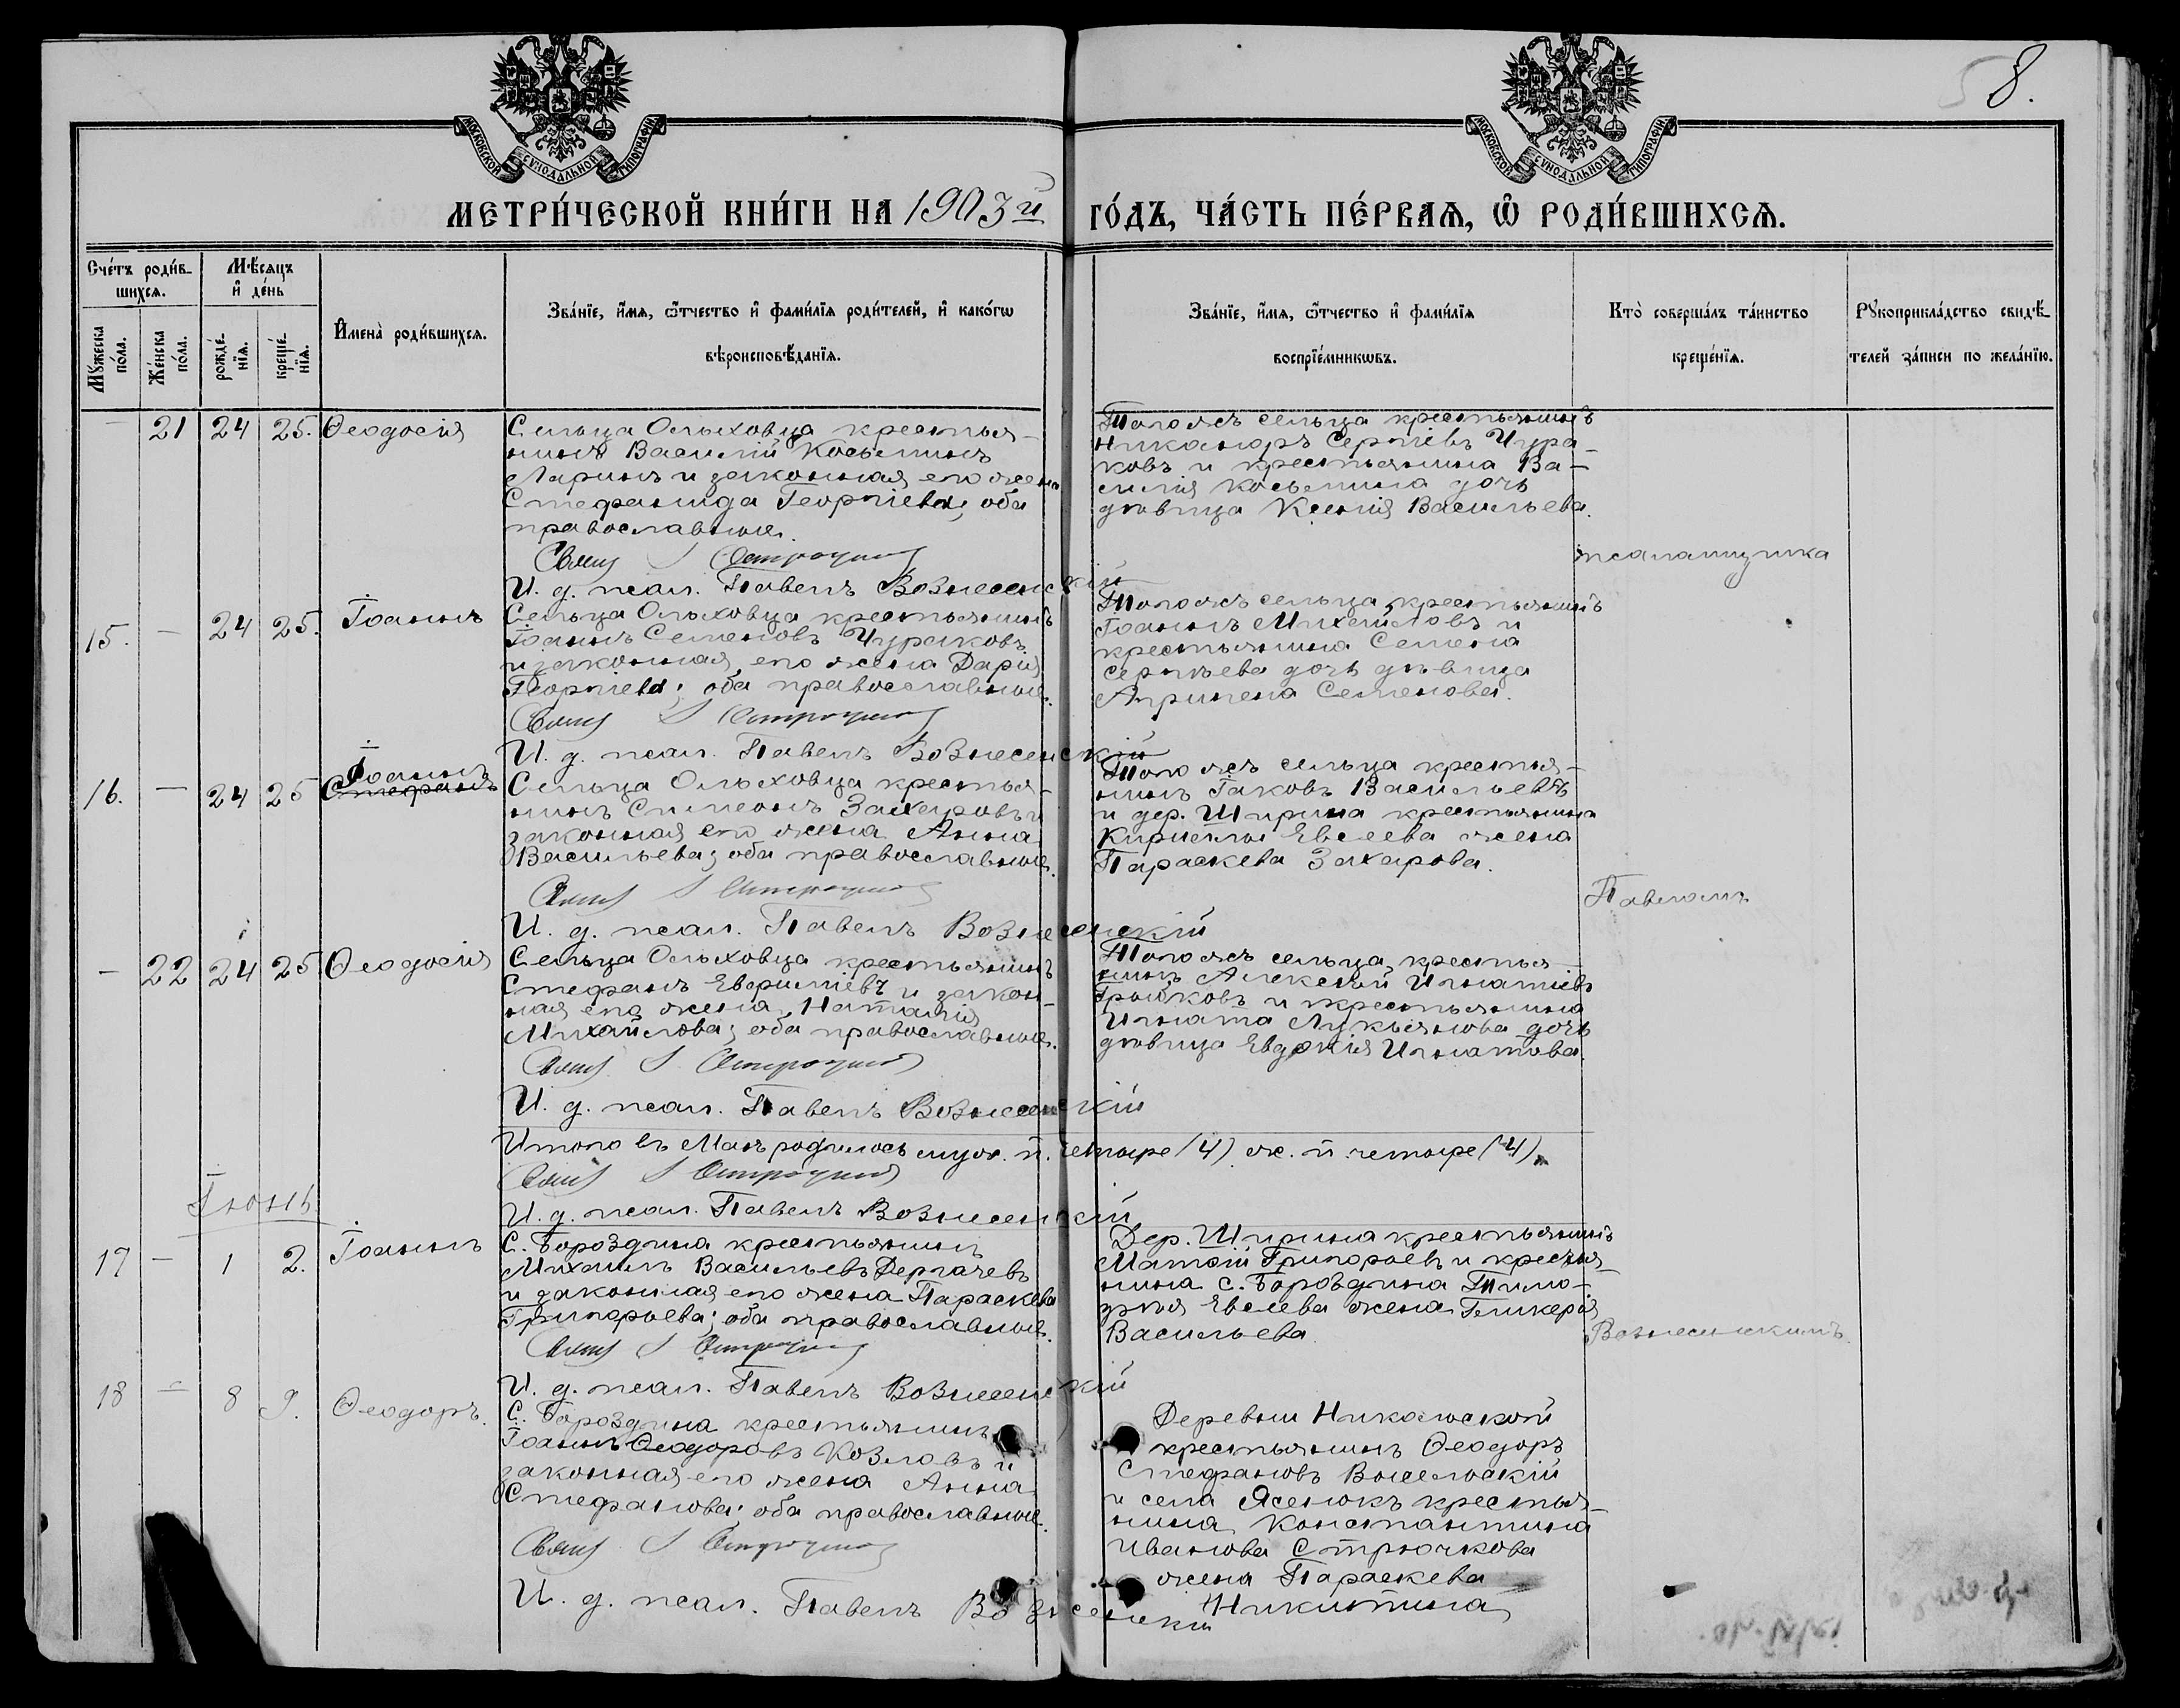 8.
МОСКОВСКОЙ СѴНОДАЛЬНОЙ ТИПОГРАФІИ
МОСКОВСКОЙ СѴНОДАЛЬНОЙ ТИПОГРАФІИ
МЕТРИ́ЧЕСКОЙ КНИ́ГИ НА 1903й ГО́ДЪ, ЧА́СТЬ ПЕ́РВАѦ, Ѽ РОДИ́ВШИХСѦ.
Сче́тъ роди́в-
шихсѧ.
Мꙋжеска по́ла.
Же́нска по́ла.
Мѣ́сяцъ
и҆ де́нь
рожде́-нїѧ.
креще́-нїѧ.
И҆мена̀ роди́вшихсѧ.
Зва́нїе, и҆́мѧ, ѻ҆́тчество и҆ фами́лїѧ роди́телей, и҆ како́гѡ
вѣроисповѣ́данїѧ.
Зва́нїе, и҆́мѧ, ѻ҆́тчество и҆ фами́лїѧ
воспрїе́мникѡвъ.
Кто̀ соверша́лъ та́инство
креще́нїѧ.
Рꙋкоприкла́дство свидѣ́-
телей за́писи по жела́нїю.
— 21 24 25. Ѳеодосія
Сельца Ольховца крестья-
нинъ Василій Косьминъ
Ларинъ и законная его жена
Стефанида Георгіева; оба
православные.
Свящ
И. д. псал. Павелъ Вознесенскій
Того жъ сельца крестьянинъ
Никаноръ Сергіевъ Чура-
ковъ и крестьянина Ва-
силія Косьмина дочь
дѣвица Ксенія Васильева.
псаломщика
15. — 24 25. Іоаннъ
Сельца Ольховца крестьянинъ
Іоаннъ Семеновъ Чураковъ
и законная его жена Дарія
Георгіева; оба православные.
Свящ
И. д. псал. Павелъ Вознесенскій
Того жъ сельца крестьянинъ
Іоаннъ Михайловъ и
крестьянина Семена
Сергѣева дочь дѣвица
Агрипена Семенова.
16. — 24 25 Іоаннъ
Стефанъ
Сельца Ольховца крестья-
нинъ Симеонъ Захаровъ и
законная его жена Анна
Васильева; оба православные.
Свящ
И. д. псал. Павелъ Вознесенскій
Того жъ сельца крестья-
нинъ Іаковъ Васильевъ
и дер. Ширина крестьянина
Кирилы Евсеева жена
Параскева Захарова.
Павломъ
— 22 24 25 Ѳеодосія
Сельца Ольховца крестьянинъ
Стефанъ и закон-
ная его жена Наталія
Михайлова; оба православные.
Свящ
И. д. псал. Павелъ Вознесенскій
Того жъ сельца крестья-
нинъ Алексѣй Игнатіевъ
и крестьянина
Игната Лукьянова дочь
дѣвица Евдокія Игнатова.
Итого въ Маѣ родилось муж. п. четыре (4) ж. п. четыре (4).
Свящ
И. д. псал. Павелъ Вознесенскій
Іюнь
17 — 1 2. Іоаннъ
С. Бороздина крестьянинъ
Михаилъ Васильевъ Дергачевъ
и законная его жена Параскева
Григорьева; оба православные.
Свящ
И. д. псал. Павелъ Вознесенскій
Дер. Ширина крестьянинъ
Григорьевъ и крестья-
нина с. Бороздина Тимо-
ѳея Евсеева жена Гликерія
Васильева
Вознесенскимъ.
18 — 8 9. Ѳеодоръ.
С. Бороздина крестьянинъ
Іоаннъ Ѳеодоровъ Козловъ и
законная его жена Анна
Стефанова; оба православные.
Свящ
И. д. псал. Павелъ Вознесенскій
Деревни Никольской
крестьянинъ Ѳеодоръ
Стефановъ
и села Ясенокъ крестья-
нина Константина
Иванова Стрючкова
жена Параскева
Никитина